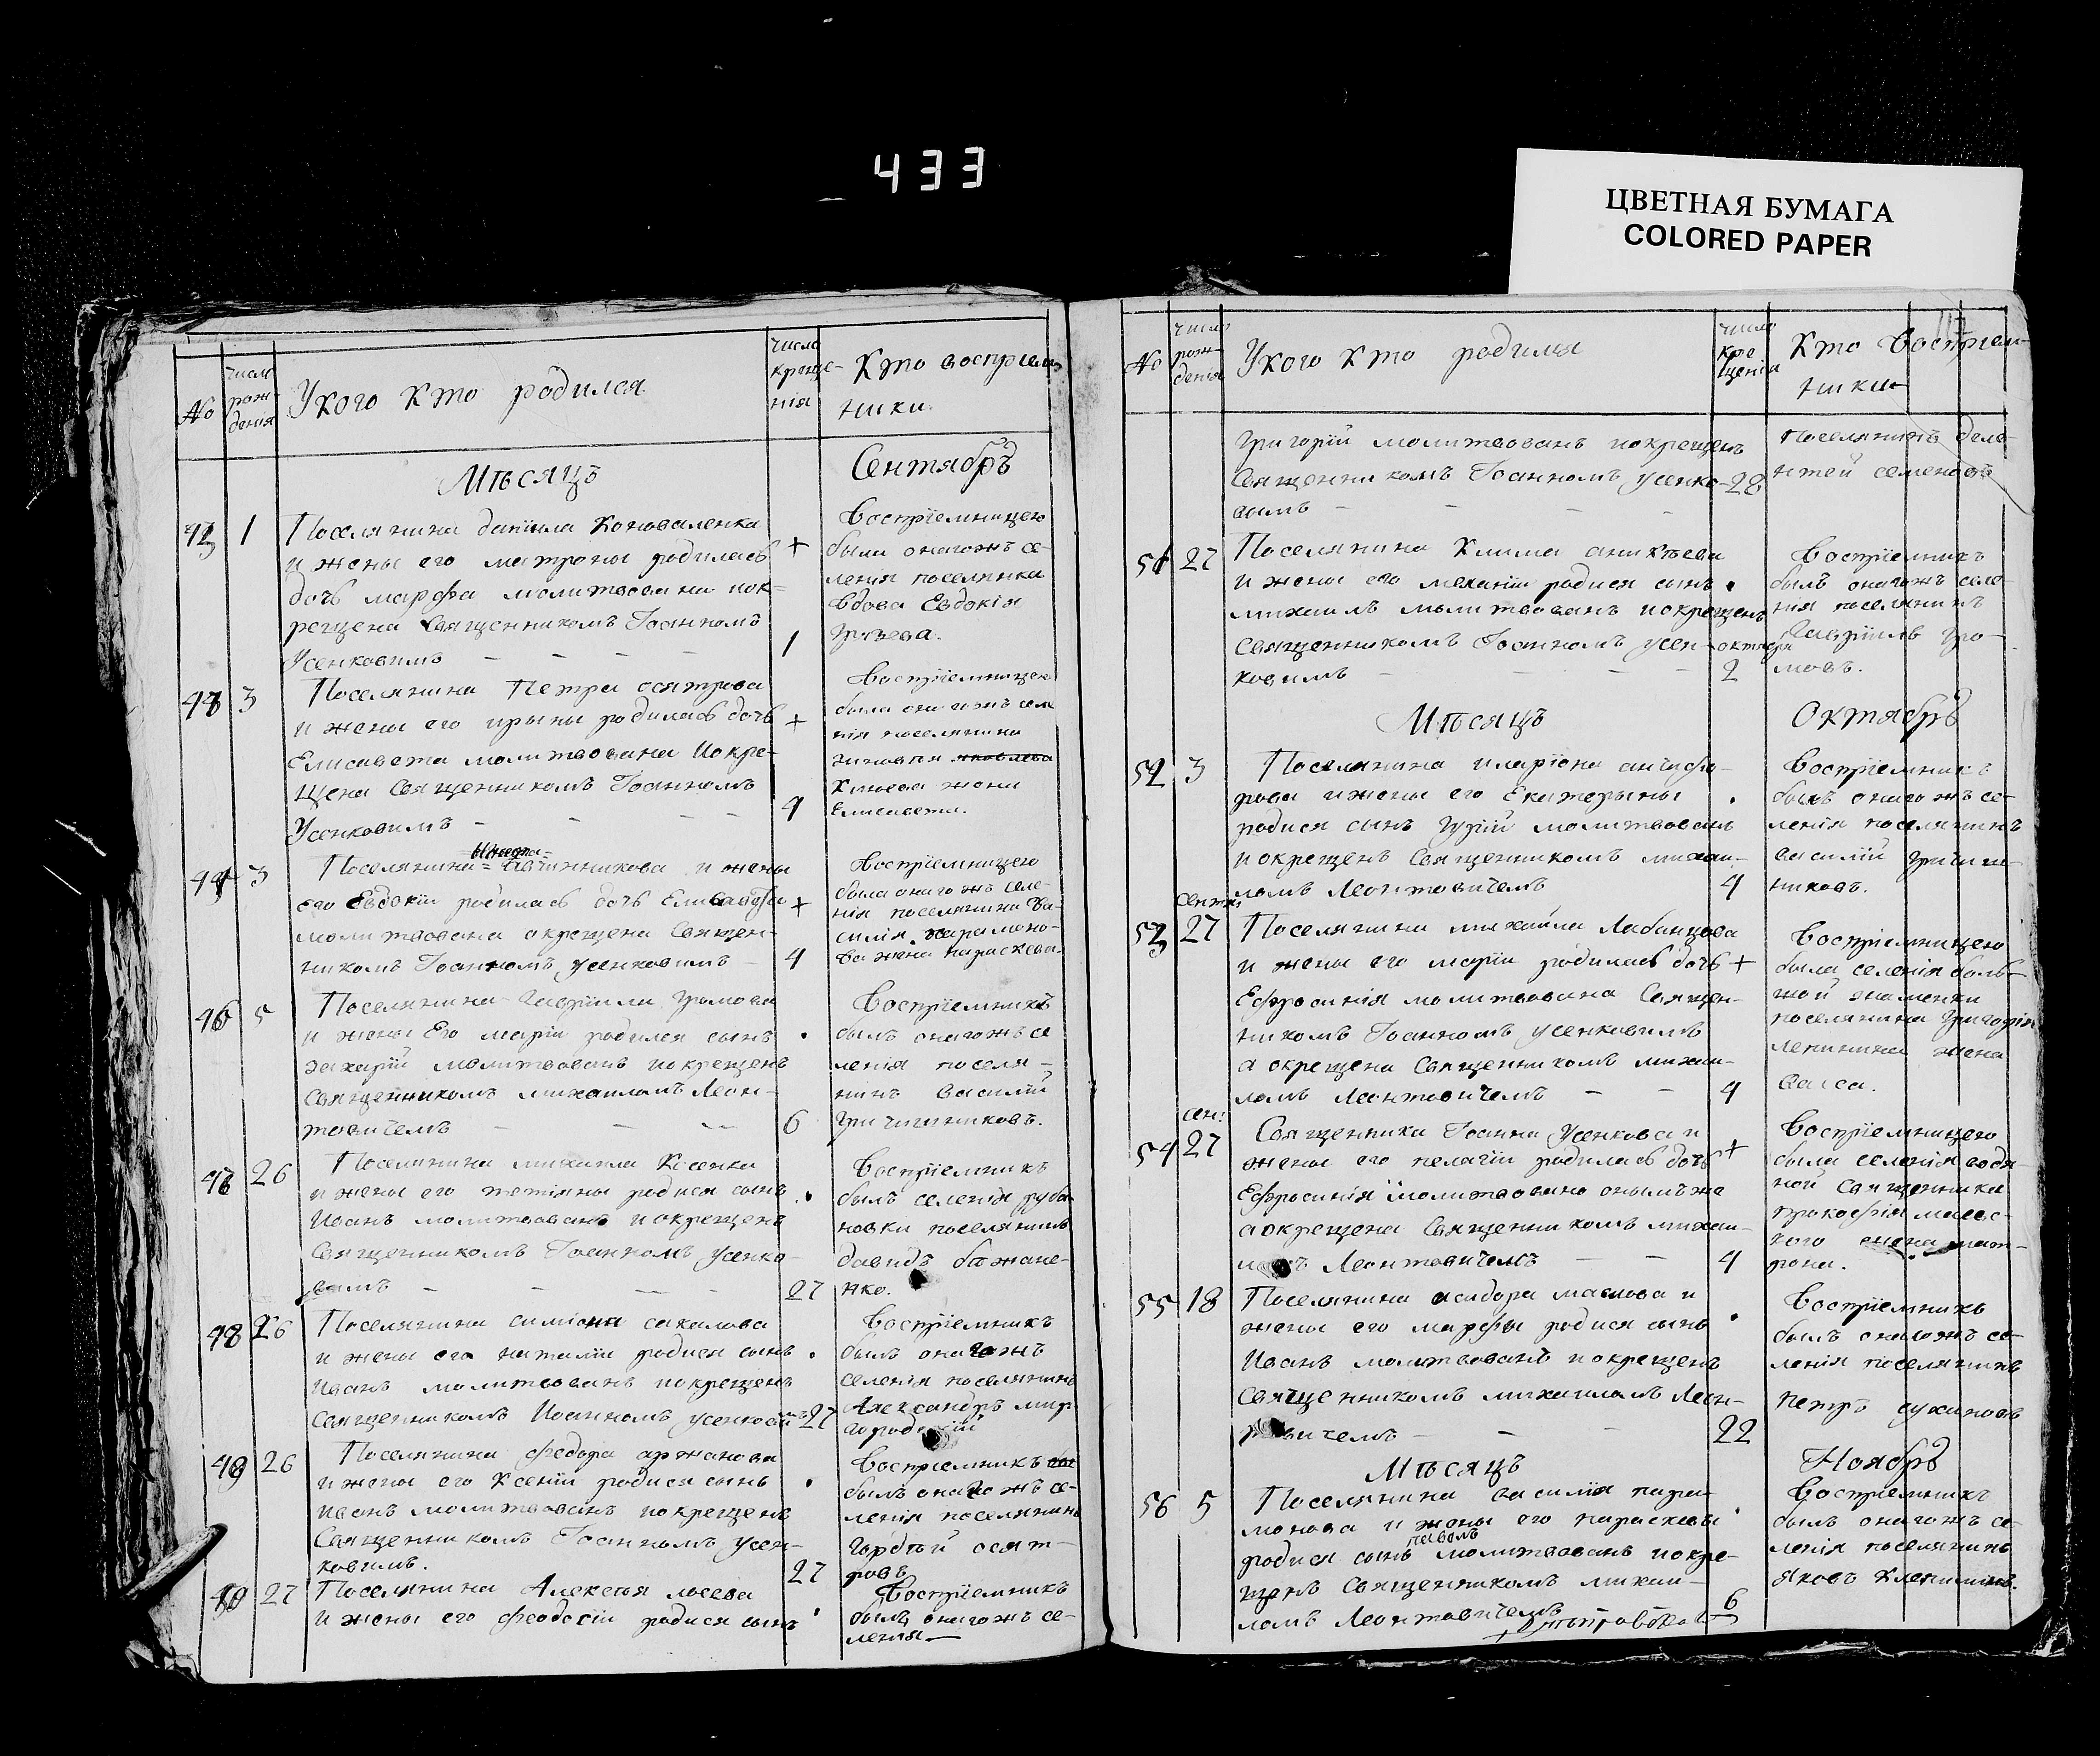 433
ЦВЕТНАЯ БУМАГА
COLORED PAPER
No
число рождения
Укого Кто родился
числа крещения
Кто восприем
ники.
Мѣсяцъ
Сентябръ
1
Поселянина даніила Коноваленка
и жены его матроны родилась
дочь марфа молитвована иок-
рещена Священникомъ Іоанномъ
Усенковимъ
+
1
Воспріемницею
была оногожъ се-
ленія поселянка
вдова Евдокія
3
Поселянина Петра осятрова
и жены его ирыны родилась дочь
Елисавета молитвована Иокре-
щена Священникомъ Іоанномъ
Усенковимъ
+
4
Воспріемницею
была оногожъ селе
нія поселянина
жена
Елисавета.
3
Поселянина и жены
его Евдокіи родилась дочь
молитвована окрещена Священ-
никомъ Іоанномъ усенковимъ
+
4
Воспріемницею
была оногожъ селе-
нія поселянина Ва-
силія Парамоно-
ва жена параскева.
5
Поселянина Гавріила Громова
и жены Его маріи родился сынъ
захарій молитвованъ иокрещенъ
Священникомъ михаиломъ Леон-
товичемъ
6
Воспріемникъ
былъ оногожъ се
ленія поселя-
нинъ Василій
Гричишниковъ.
26
Поселянина михаила Косенка
и жены его тетіяны родися сынъ
Иванъ молитвованъ иокрещенъ
Священникомъ Іоанномъ усенко-
вимъ
27
Воспріемникъ
былъ селенія руба
новки поселянинъ
давидъ бажане-
нко.
48 26
Поселянина симіона сакалова
и жены его наталіи родися сынъ
Иванъ молитвованъ иокрещенъ
Священникомъ Иоанномъ усенковимъ
27
Воспріемникъ
былъ оногожъ
селенія поселянинъ
Александръ мир
городскій
49 26
Поселянина федора аржанова
и жены его Ксеніи родися сынъ
иванъ молитвованъ иокрещенъ
Священникомъ Іоанномъ усен-
ковимъ.
27
Воспріемникъ
былъ оногожъ се-
ленія поселянинъ
Гордѣй осят-
ровъ
27
Поселянина Алексѣя лосева
и жены его феодосіи родися сынъ
Воспріемникъ
былъ оногожъ се-
ленія
No
число рождения
Укого Кто родился
число крещения
Кто Восприем-
ники
Григорій молитвованъ иокрещенъ
Священникомъ Іоанномъ усенко-
вимъ
28
Поселянинъ
семеновъ
51 27
Поселянина Клима аникѣева
и жены его меланіи родися сынъ
михаилъ молитвованъ иокрещенъ
Священникомъ Іоанномъ усен-
ковимъ
октября
2
Воспріемникъ
былъ оногожъ селе-
нія поселянинъ
Гавріилъ гро-
мовъ.
Мѣсяцъ
Октябръ
52 3
Поселянина иларіона анисфо-
рова ижены его Екатерыны
родися сынъ Гурій молитвованъ
иокрещенъ Священникомъ михаи-
ломъ Леонтовичемъ
4
Воспріемникъ
былъ оногожъ се-
ленія поселянинъ
василій гричиш-
никовъ.
53 27
Поселянина михаила Лабанцова
и жены его маріи родилась дочь
Ефросинія молитвована Священ-
никомъ Іоанномъ усенковимъ
а окрещена Священникомъ михаи-
ломъ Леонтовичемъ
+
4
Воспріемницею
была селенія боль-
шой знаменки
поселянина Григорія
жена
Васса.
сен:
54 27
Священника Іоанна Усенкова и
жены его пелагіи родилась дочь
Ефросинія молитвована онымъже
аокрещена Священникомъ михаи-
Леонтовичемъ
+
4
Воспріемницею
была селенія водя
ной Священника
прокофія
жена мат-
рона.
55 18
Поселянина исидора маслова и
жены его марфы родися сынъ
Иванъ молитвованъ иокрещенъ
Священникомъ михаиломъ Леон-
товичемъ
22
Воспріемникъ
былъ оногожъ се-
ленія поселянинъ
Петръ сухановъ
Мѣсяцъ
Ноябръ
56 5
Поселянина василія пара-
монова и жены его параскевы
павелъ
родися сынъ молитвованъ иокре-
щенъ Священникомъ михаи-
ломъ Леонтовичемъ
6
Воспріемникъ
былъ оногожъ се-
ленія поселянинъ
Яковъ